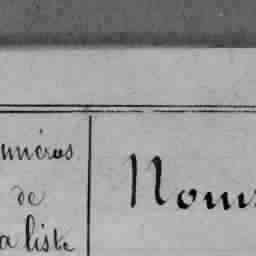 uméros
de
la liste
Noms